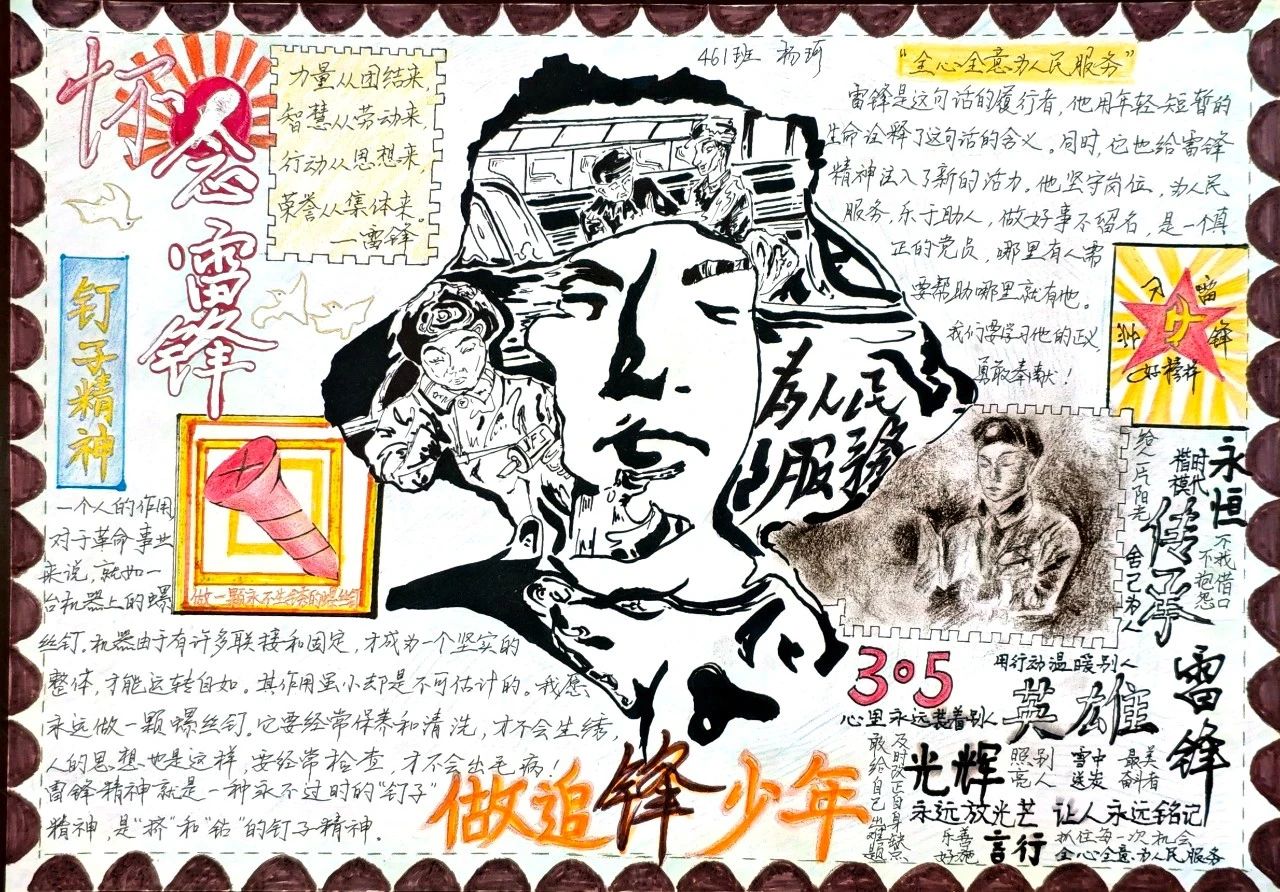 怀念雷锋
力量从团结来,
智慧从劳动来,
行动从思想来,
荣誉从集体来。
—雷锋
461班 杨珂
“全心全意为人民服务”
雷锋是这句话的履行者,他用年轻短暂的
生命诠释了这句话的含义。同时,它也给雷锋
精神注入了新的活力。他坚守岗位,为人民
服务,乐于助人,做好事不留名,是一个真
正的党员,哪里有人需
要帮助哪里就有他。
我们要学习他的正义,
勇敢奉献!
好榜样
钉子精神
做一颗永不生锈的螺丝钉
为人民
服务
一个人的作用
对于革命事业
来说,就如一
台机器上的螺
丝钉,机器由于有许多联接和固定,才成为一个坚实的
整体,才能运转自如。其作用虽小却是不可估计的。我愿
永远做一颗螺丝钉。它要经常保养和清洗,才不会生锈,
人的思想也是这样,要经常检查,才不会出毛病!
雷锋精神就是一种永不过时的“钉子”
精神,是“挤”和“钻”的钉子精神。
做追锋少年
给人一片阳光
舍己为人
时代
楷模
永恒
传承
不找借口
不抱怨
雷锋
305
用行动温暖别人
心里永远装着别人
英雄
敢给自己出难题
及时改正自身缺点
光辉
照别
亮人
雪中
送炭
最美
奋斗者
永远放光芒 让人永远铭记
乐善
好施
言行
抓住每一次机会
全心全意为人民服务